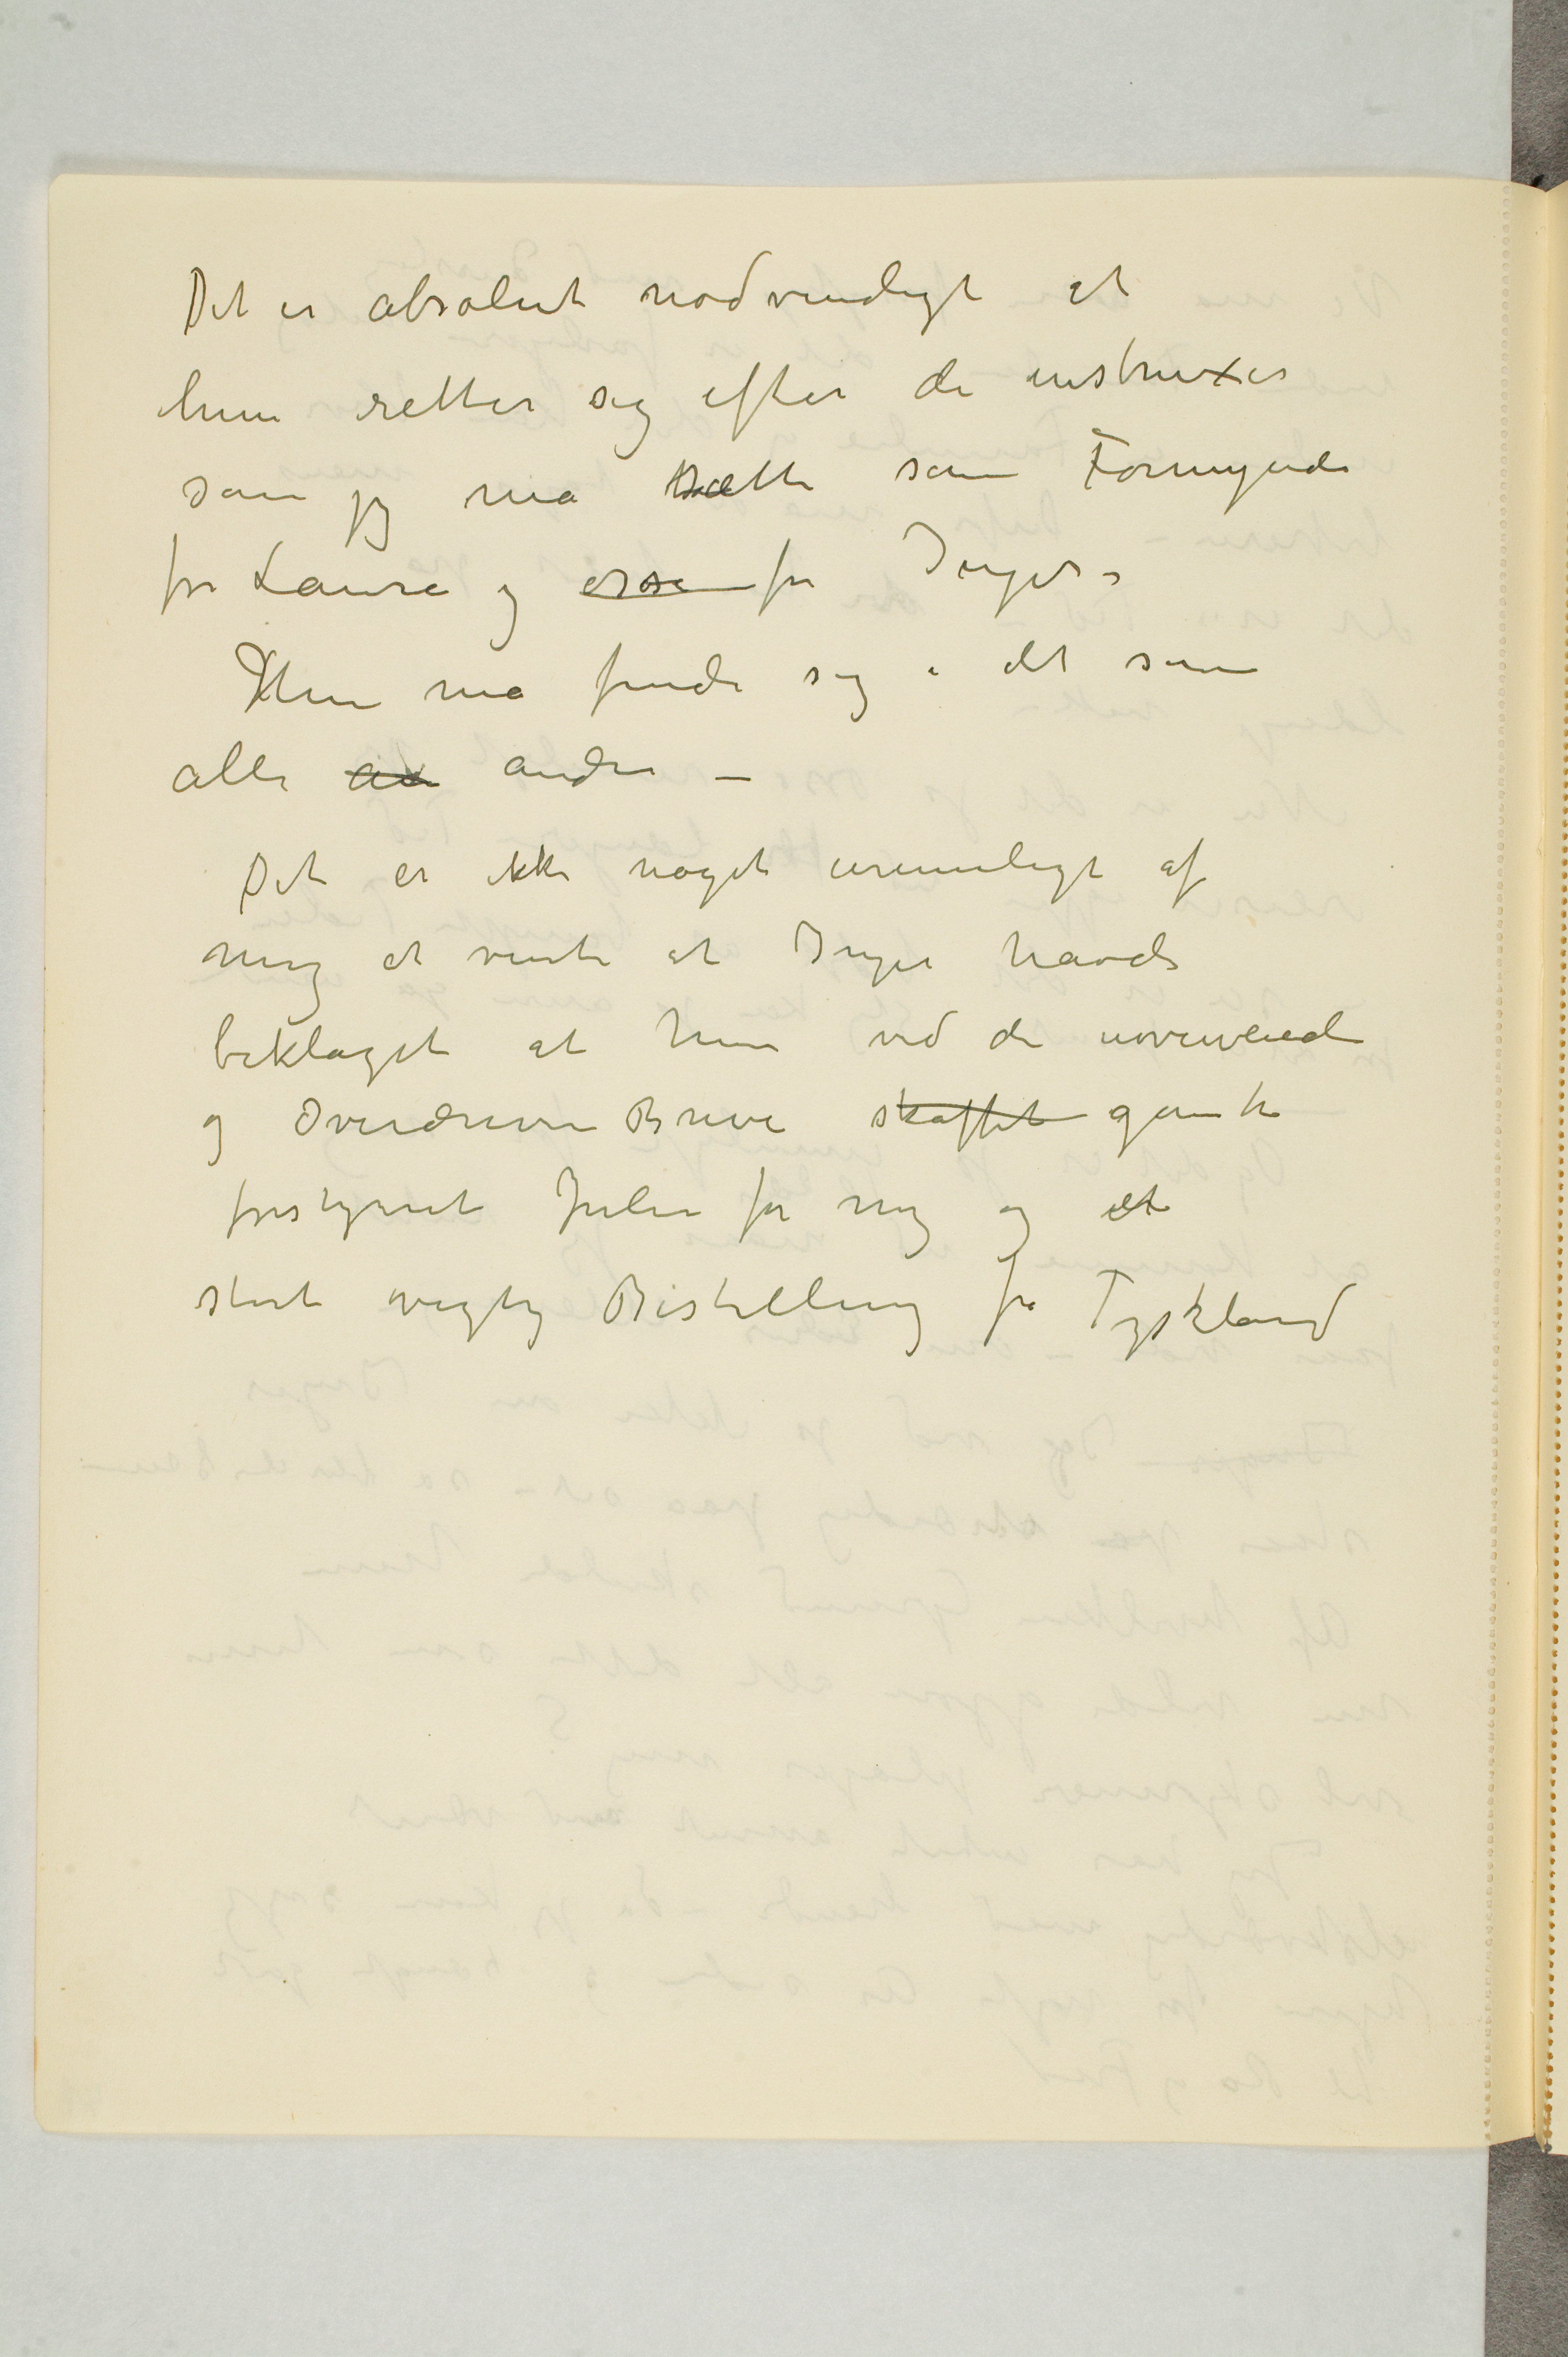 Det er absolut nødvendigt at
hun retter sig efter de instruxer
som jeg må sætte som Formynder
for Laura og osse for Inger.
Hun må finde sig i det som
alle an andre —
Det er ikke noget urimeligt af
mig at vente at Inger havde
beklaget at hun ved de uoverveiede
og Overdrevne Breve skaffet ganske
forstyrret Julen for mig og et
stort vigtig Bestilling fra Tyskland